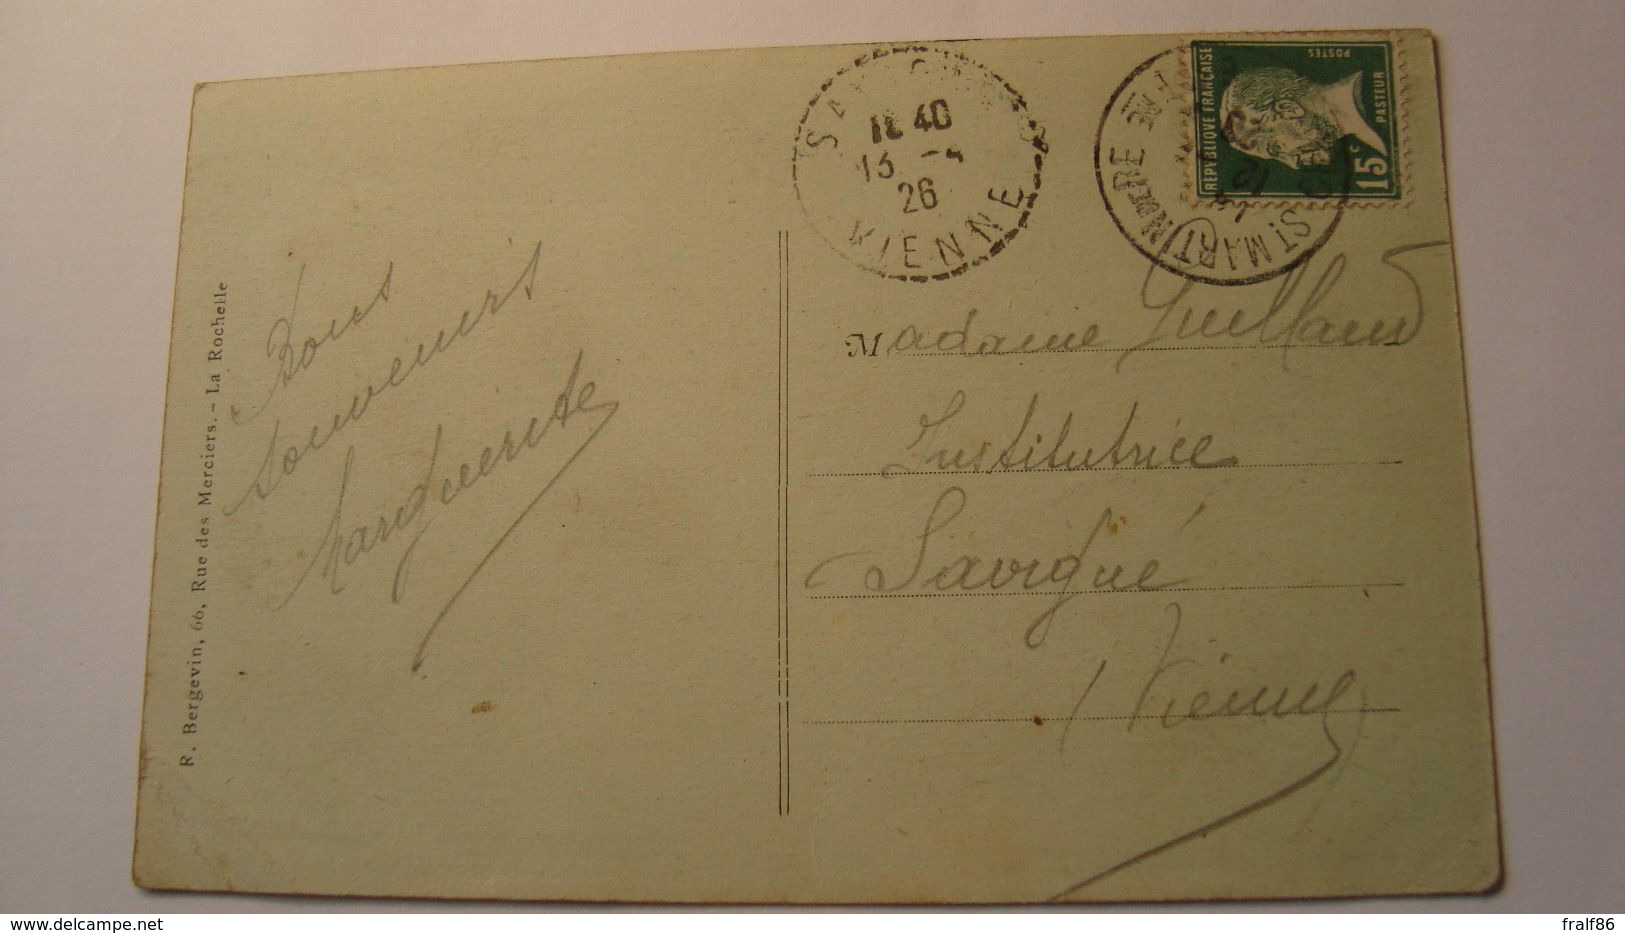 R. Bergevin, 66, Rue des Merciers. – La Rochelle
Bons
souvenirs
Marguerite
18 40
13 -4
26
VIENNE
ST MARTIN DE RE
REPVBLIQVE FRANÇAISE
POSTES
PASTEUR
15c
Madame Guillaud
Institutrice
Savigné
(Vienne)
delcampe.net
fralf86